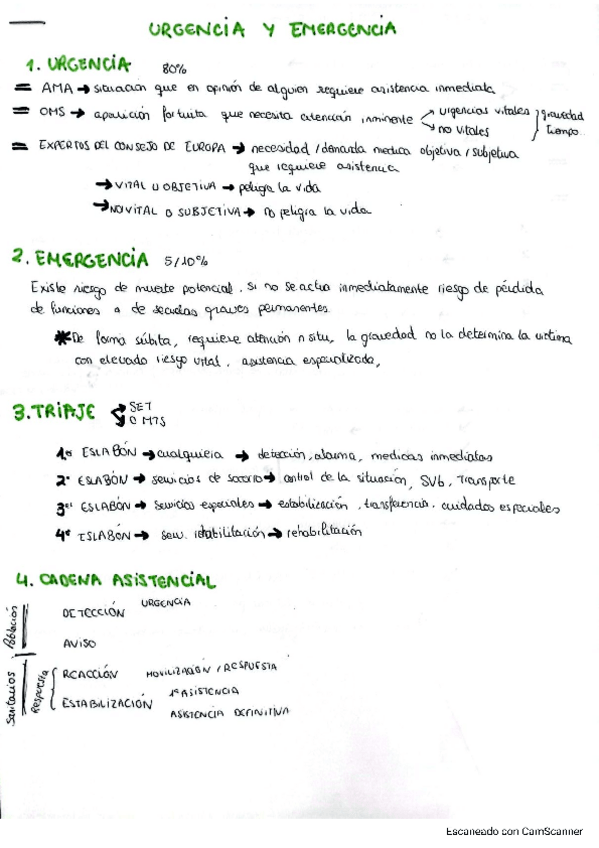 URGENCIA Y EMERGENCIA
1. URGENCIA 80%
= AMA → situación que en opinión de alguien requiere asistencia inmediata
= OMS → aparición fortuita que necesita atención inminente → urgencias vitales } gravedad
→ no vitales } tiempo
= EXPERTOS DEL CONSEJO DE EUROPA → necesidad / demanda medica objetiva / subjetiva
que requiere asistencia
→ VITAL U OBJETIVA → peligra la vida
→ NO VITAL O SUBJETIVA → no peligra la vida
2. EMERGENCIA 5/10%
Existe riesgo de muerte potencial. Si no se actua inmediatamente riesgo de pérdida
de funciones o de secuelas graves permanentes.
* De forma súbita, requiere atención n situ, la gravedad no la determina la victima
con elevado riesgo vital, asistencia especializada,
3. TRIAJE → SET
→ O MTS
1er ESLABÓN → cualquiera → detección, alarma, medidas inmediatas
2º ESLABÓN → servicios de socorro → control de la situación, SVb, Transporte
3er ESLABÓN → Servicios especiales → estabilización, transferencia, cuidados especiales
4º ESLABÓN → serv. rehabilitación → rehabilitación
4. CADENA ASISTENCIAL
Población
DETECCIÓN URGENCIA
AVISO
Sanitarios
Respuesta
REACCIÓN MOVILIZACIÓN / RESPUESTA
ESTABILIZACIÓN 1ª ASISTENCIA
ASISTENCIA DEFINITIVA
Escaneado con CamScanner